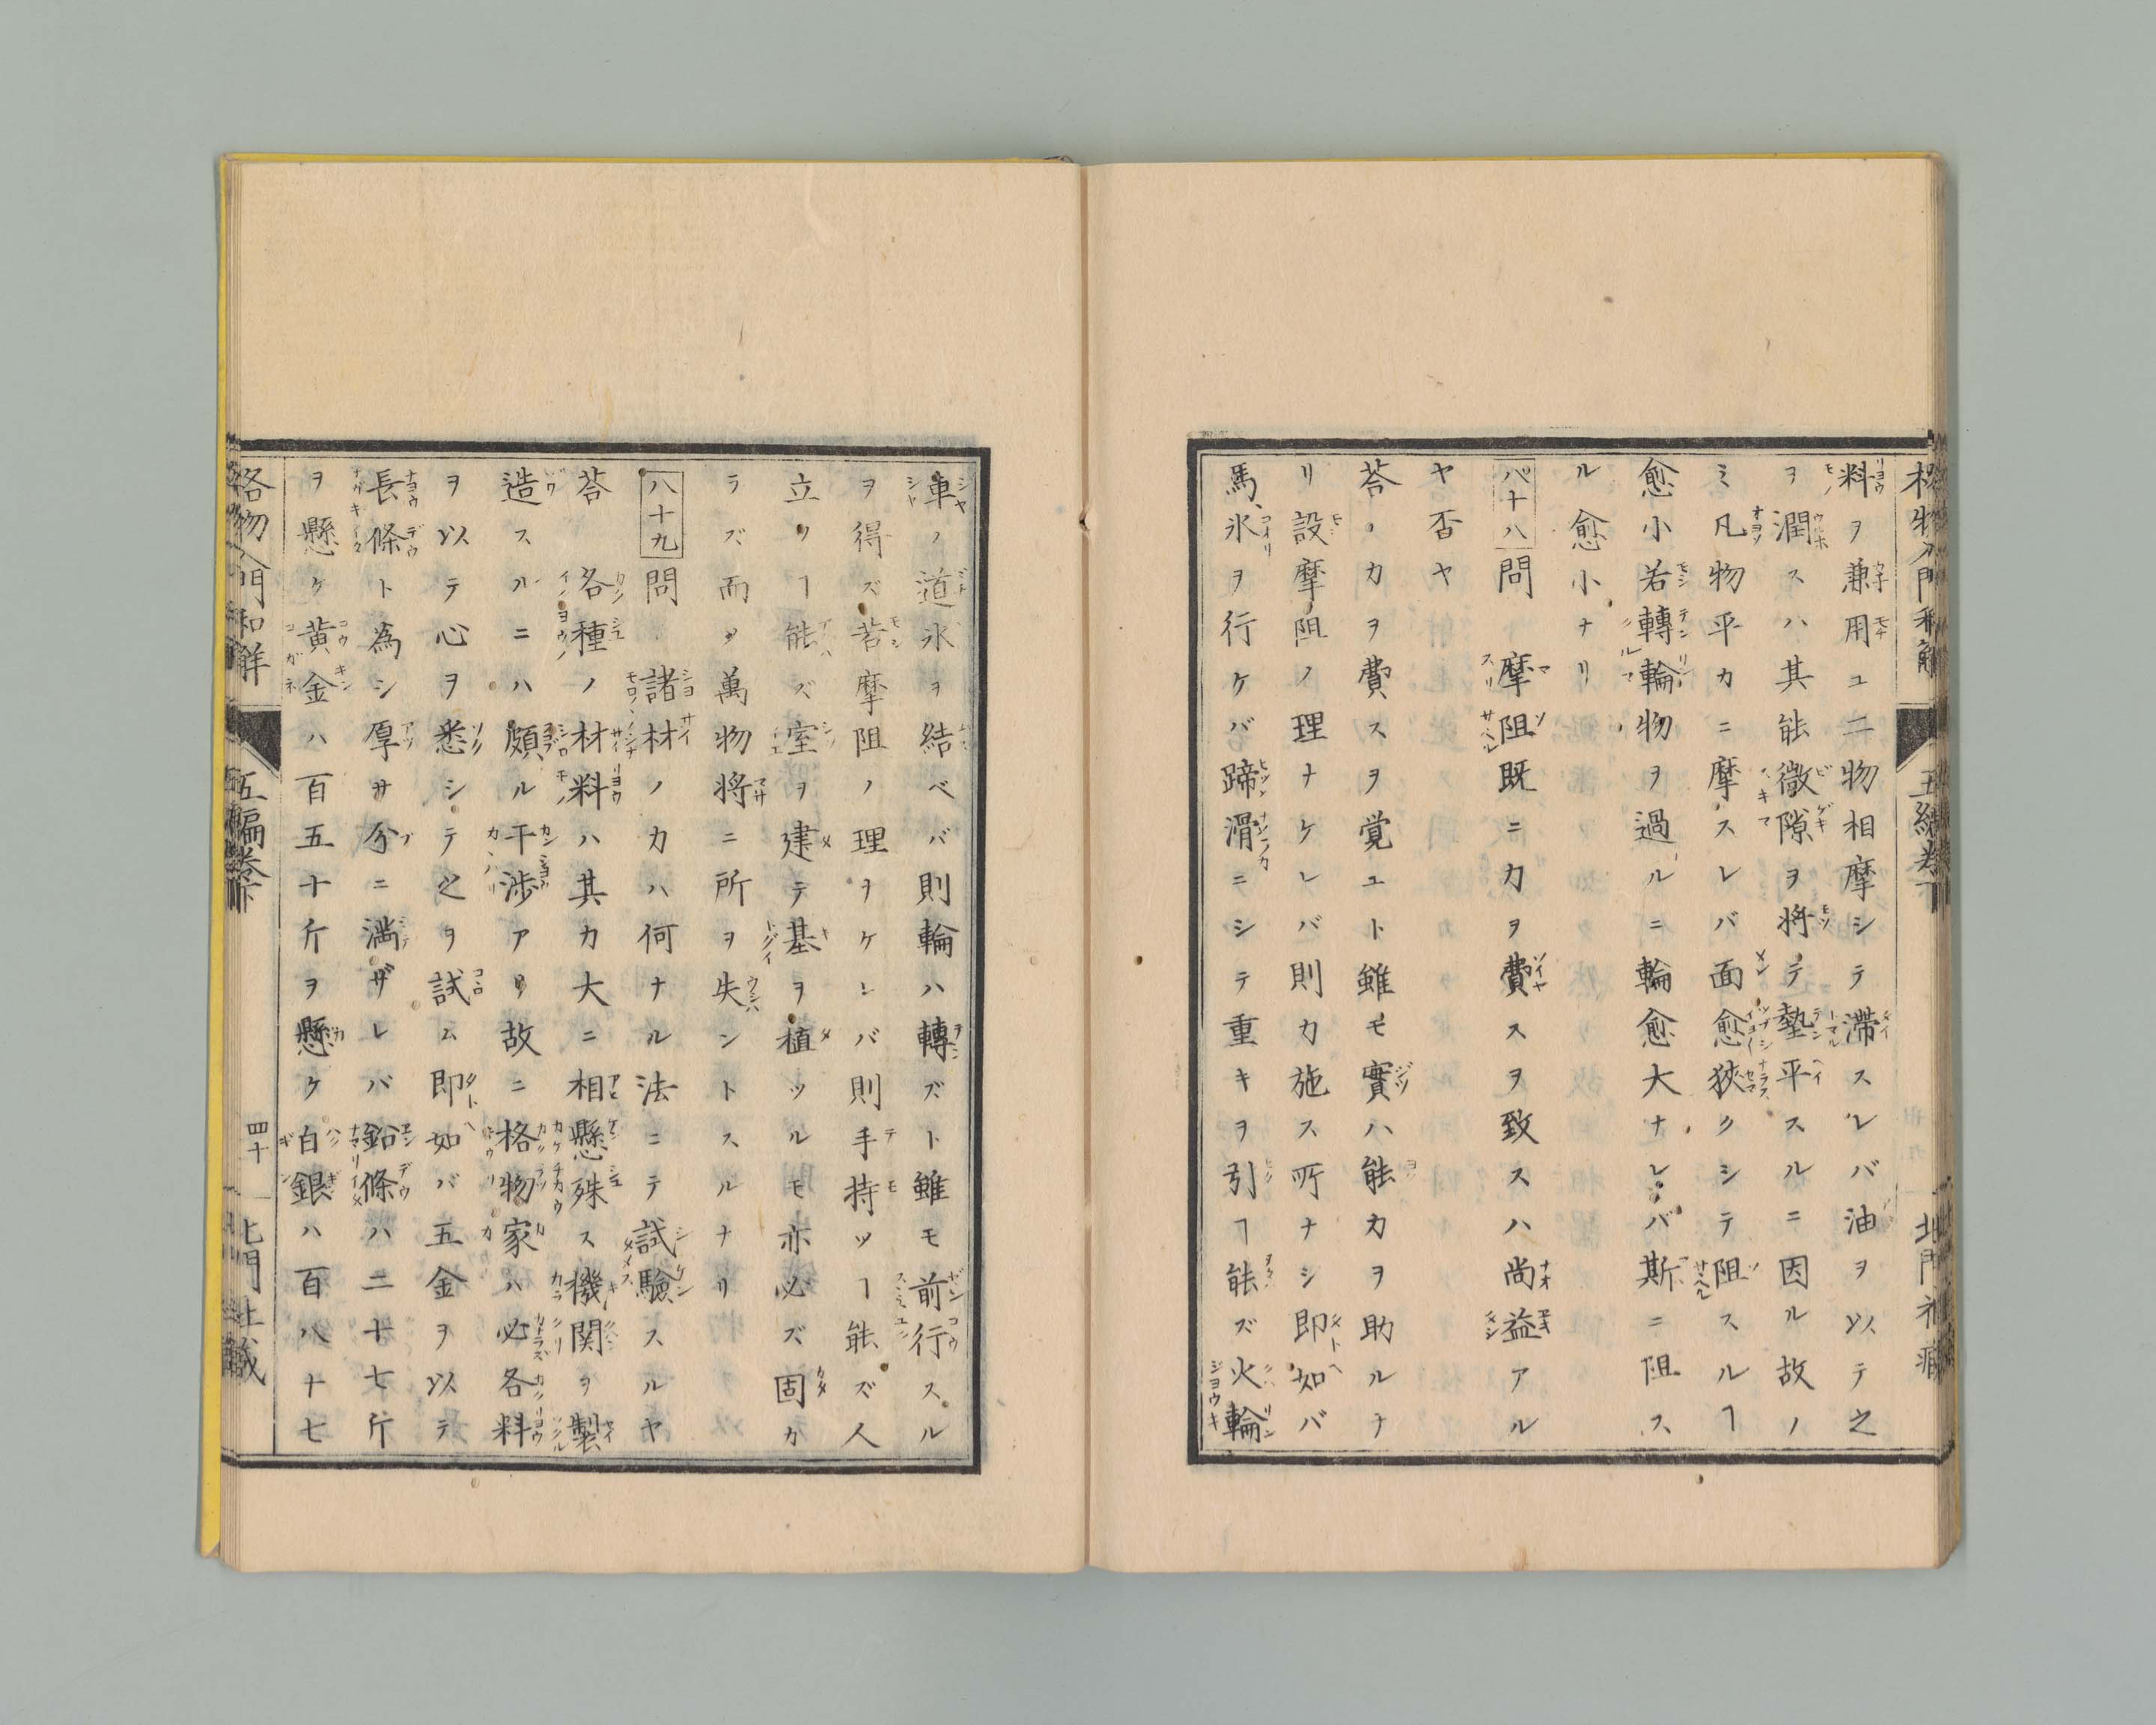 料ヲ兼用ユ二物相摩シテ滯スレバ油ヲ以テ之
ヲ潤スハ其能微隙ヲ将テ墊平スルニ因ル故ノ
ミ凡物平カニ摩スレバ面愈狹クシテ阻スルヿ
愈小若轉輪物ヲ過ルニ輪愈大ナレバ斯ニ阻ス
ル愈小ナリ
八十八問 摩阻既ニ力ヲ費スヲ致スハ尚益アル
ヤ否ヤ
荅 力ヲ費スヲ覚ユト雖モ實ハ能力ヲ助ルナ
リ設摩阻ノ理ナケレバ則力施ス所ナシ即如バ
馬氷ヲ行ケバ蹄滑ニシテ重キヲ引ヿ能ズ火輪
車ノ道氷ヲ結ベバ則輪ハ轉ズト雖モ前行スル
ヲ得ズ若摩阻ノ理ヲケレバ則手持ツヿ能ズ人
立ツヿ能ズ室ヲ建テ基ヲ植ツルモ亦必ズ固カ
ラズ而〆萬物将ニ所ヲ失ントスルナリ
八十九問 諸材ノ力ハ何ナル法ニテ試驗スルヤ
荅 各種ノ材料ハ其力大ニ相懸殊ス機関ヲ製
造スルニハ頗ル干渉アリ故ニ格物家ハ必各料
ヲ以テ心ヲ悉シテ之ヲ試ム即如バ五金ヲ以テ
長條ト為シ厚サ分ニ満ザレバ鉛條ハ二十七斤
ヲ懸ケ黄金ハ百五十斤ヲ懸ケ白銀ハ百八十七
格物入門和解 五編巻下 四十 北門社蔵